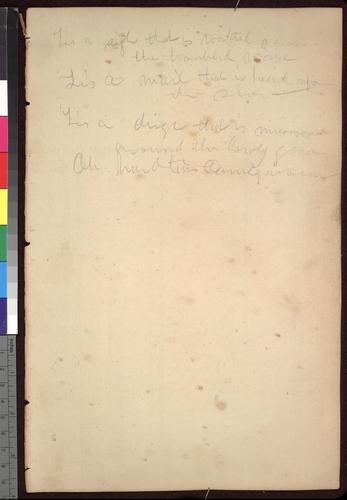 Tis a sigh that is wafted across
the troubled wave
Tis a wail that is heard upon
the shore
Tis a dirge that is murmured
around the lowly grave
Oh hard times come again